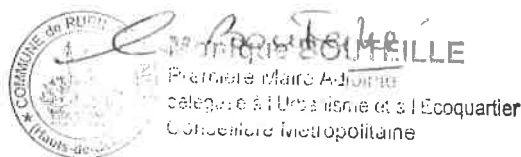 COMMUNE de RUEIL
Monique BOUTEILLE
Première Maire Adjointe
déléguée à l'Urbanisme et à l'Ecoquartier
Conseillère Métropolitaine
(Hauts-de-